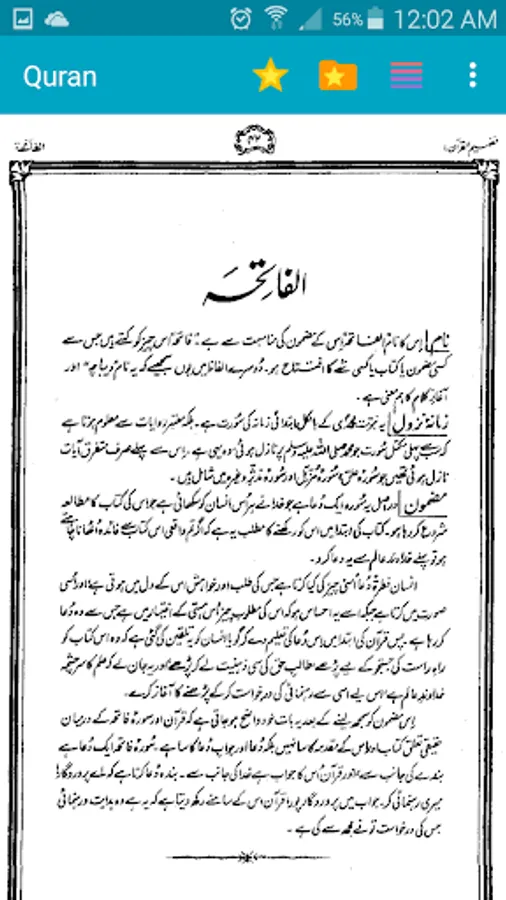 56% 12:02 AM
Quran
تفہیم القرآن ۱
۴۲
الفاتحۃ
الفاتحہ
نام اِس کا نام الفاتحہ اِس کے مضمون کی مناسبت سے ہے۔ فاتحہ اُس چیز کو کہتے ہیں جس سے
کسی مضمون یا کتاب یا کسی شے کا افتتاح ہو۔ دُوسرے الفاظ میں یوں سمجھیے کہ یہ نام دیباچہ اور
آغازِ کلام کا ہم معنی ہے۔
زمانۂ نزول یہ نبوّتِ محمدی کے بالکل ابتدائی زمانہ کی سُورت ہے۔ بلکہ معتبر روایات سے معلوم ہوتا ہے
کہ سب سے پہلی مکمّل سُورت جو محمد صلی اللہ علیہ وسلم پر نازل ہوئی وہ یہی ہے۔ اِس سے پہلے صرف متفرق آیات
نازل ہوئی تھیں جو سُورۂ علق، سُورۂ مزّمّل اور سُورۂ مدّثّر وغیرہ میں شامل ہیں۔
مضمون دراصل یہ سُورہ ایک دُعا ہے جو خدا نے ہر اُس انسان کو سکھائی ہے جو اس کی کتاب کا مطالعہ
شروع کر رہا ہو۔ کتاب کی ابتدا میں اس کو رکھنے کا مطلب یہ ہے کہ اگر تم واقعی اس کتاب سے فائدہ اُٹھانا چاہتے
ہو تو پہلے خداوندِ عالم سے یہ دعا کرو۔
انسان فطرۃً دُعا اُسی چیز کی کیا کرتا ہے جس کی طلب اور خواہش اس کے دل میں ہوتی ہے، اور اُسی
صورت میں کرتا ہے جبکہ اسے یہ احساس ہو کہ اس کی مطلوب چیز اُس ہستی کے اختیار میں ہے جس سے وہ دُعا
کر رہا ہے۔ پس قرآن کی ابتدا میں اِس دُعا کی تعلیم دے کر گویا انسان کو یہ تلقین کی گئی ہے کہ وہ اس کتاب کو
راہِ راست کی جستجو کے لیے پڑھے، طالبِ حق کی سی ذہنیت لے کر پڑھے اور یہ جان لے کہ علم کا سرچشمہ
خداوندِ عالم ہے، اس لیے اسی سے رہنمائی کی درخواست کر کے پڑھنے کا آغاز کرے۔
اِس مضمون کو سمجھ لینے کے بعد یہ بات خود واضح ہو جاتی ہے کہ قرآن اور سورۂ فاتحہ کے درمیان
حقیقی تعلق کتاب اور اُس کے مقدمہ کا سا نہیں بلکہ دُعا اور جوابِ دُعا کا سا ہے۔ سُورۂ فاتحہ ایک دُعا ہے
بندے کی جانب سے، اور قرآن اُس کا جواب ہے خدا کی جانب سے۔ بندہ دُعا کرتا ہے کہ اے پروردگار!
میری رہنمائی کر۔ جواب میں پروردگار پورا قرآن اس کے سامنے رکھ دیتا ہے کہ یہ ہے وہ ہدایت و رہنمائی
جس کی درخواست تو نے مجھ سے کی ہے۔